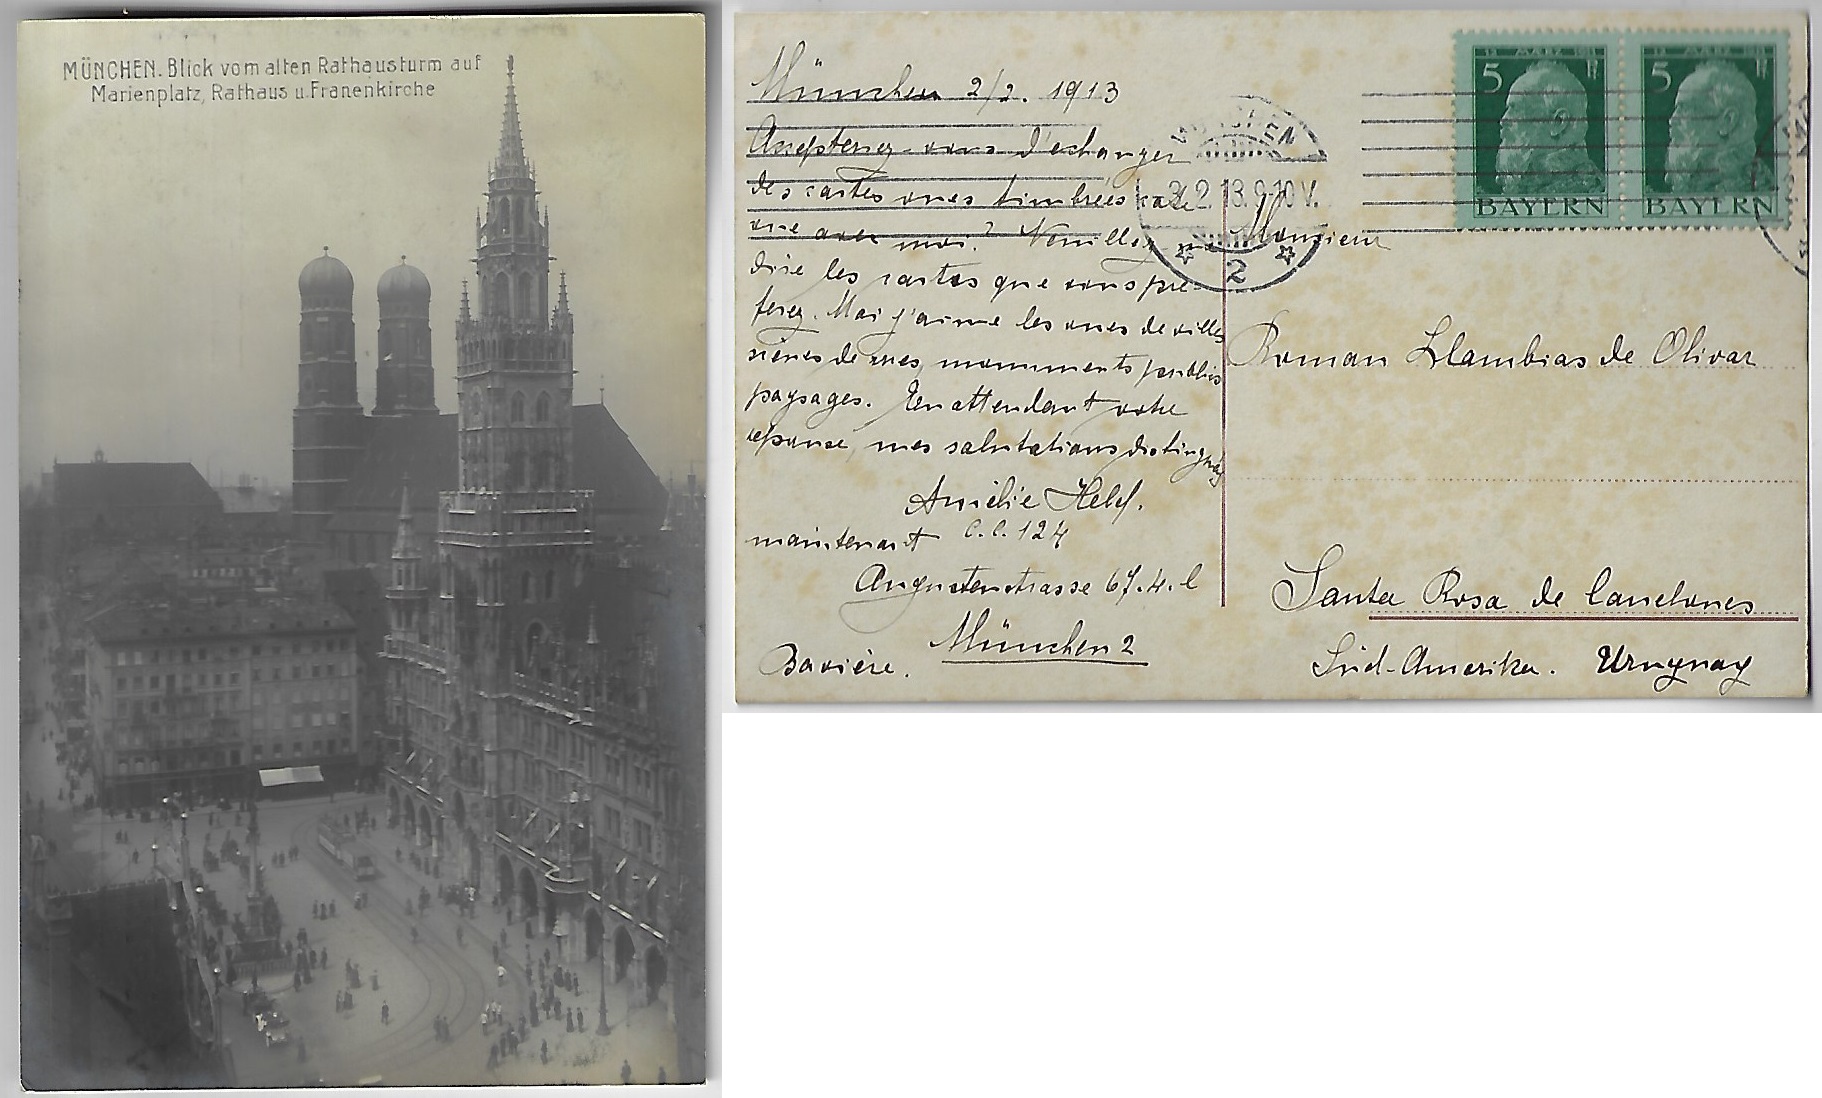 MÜNCHEN. Blick vom alten Rathausturm auf
Marienplatz, Rathaus u. Franenkirche
München 2/2. 1913
Accepterez-vous d'echanger
des cartes vues timbrées cote
vue avec moi? Veuillez me
dire les cartes que vous pre-
ferez. Moi j'aime les vues de villes
scènes de rues, monuments
paysages. En attendant votre
reponse, mes salutations distinguées
Amélie
maintenant C.C. 124
Augustenstrasse 67.4.l
München 2
Bavière.
MÜNCHEN
3.2.13.9-10V.
2
5
BAYERN
5
BAYERN
Monsieur
Roman Llambias de Olivar
Santa Rosa de Canelones
Süd-Amerika. Uruguay